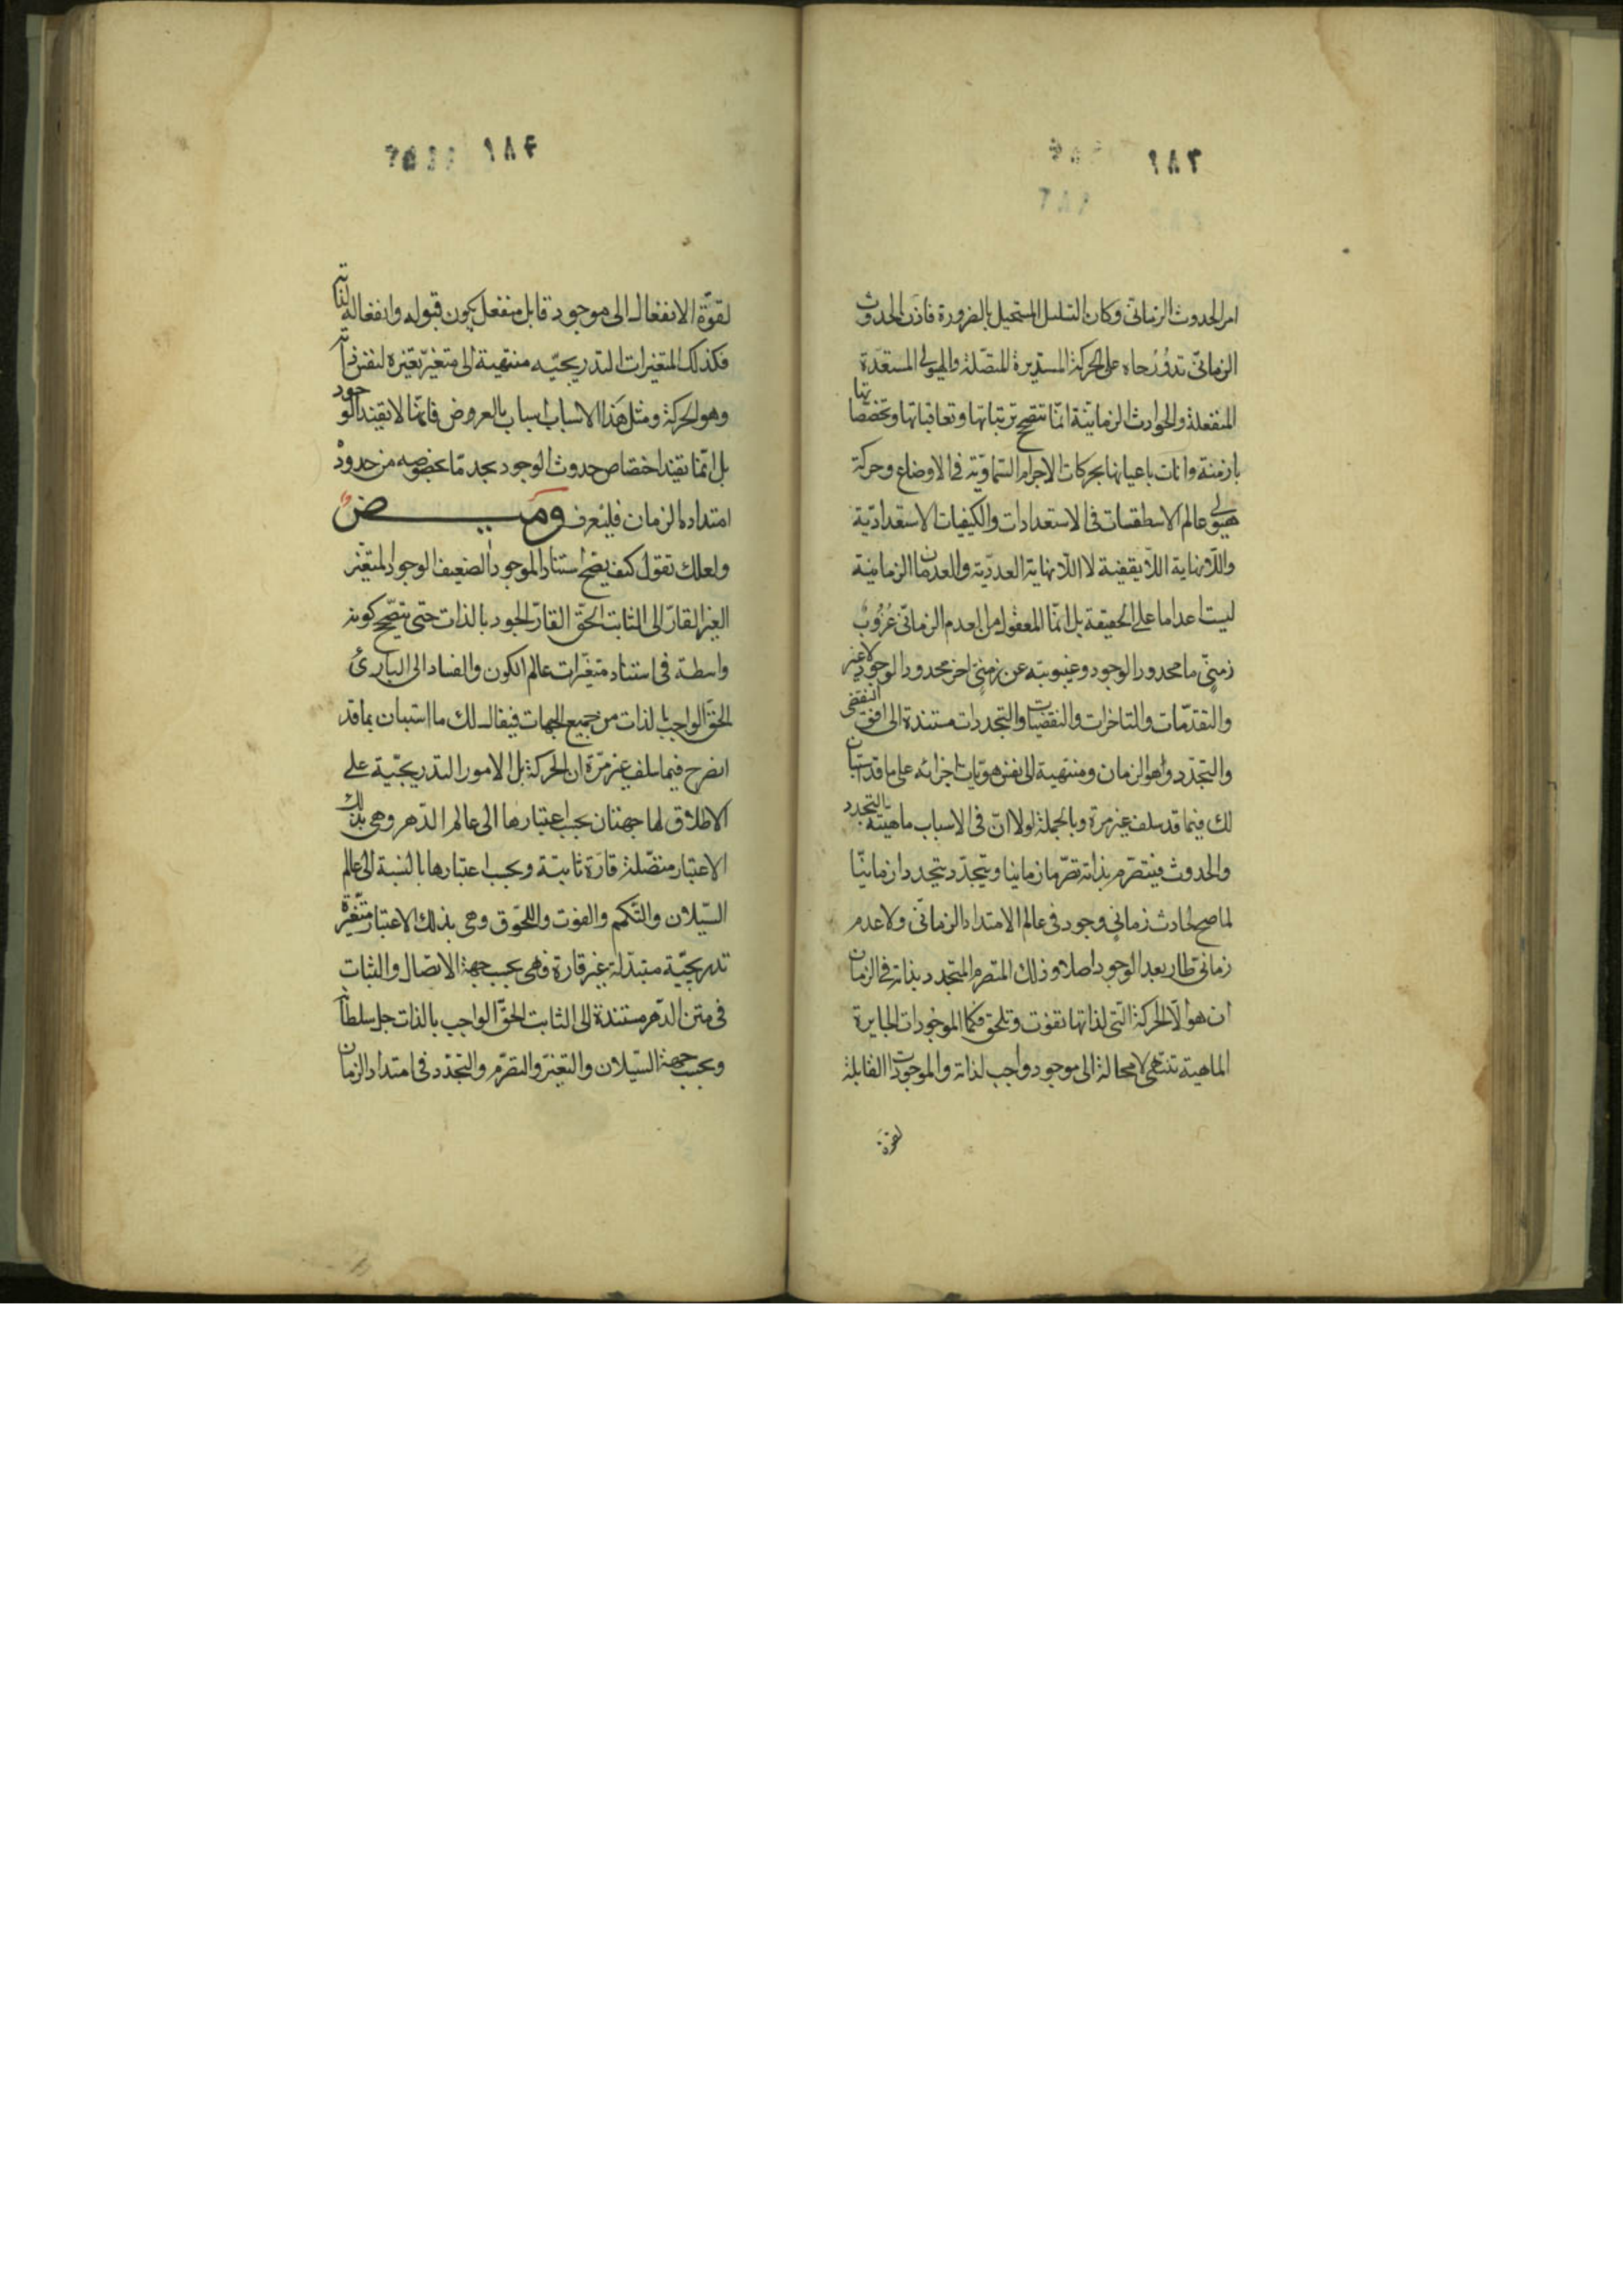 امر الحدوث الزمانىّ وكان التسلسل المستحيل بالضرورة فاذن الحدوث
الزمانىّ تدور رحاه على الحركة المستديرة المتصّلة والهيولى المستعدّة
المنفعلة والحوادث الزمانيّة انمّا تتصحح ترتباتها وتعاقباتها وتخصّصاتها
بازمنة وانات باعيانها بحركات الاجرام السّماويّة فى الاوضاع وحركة
هيولى عالم الاسطقسات فى الاستعدادات والكيفيات الاستعداديّة
واللّانهاية اللّايقفية لا اللّانهاية العدديّة والعدمان الزمانية
ليست اعداما على الحقيقة بل انمّا المعقول من العدم الزمانىّ عُزُوب
زمنىّ ما محدود الوجود وغيبوبته عن زمنىّ اخر محدود الوجود لا غير
والتقدّمات والتاخرات والتقضّيات والتجددات مستندة الى افق التقضى
والتجدّد وهو الزمان ومنتهية الى نفس هويّات اجزائه على ما قد استبان
لك فيما قد سلف غير مرة وبالجملة لولا انّ فى الاسباب ماهيّته التجدد
والحدوث فيتصرّم بذاته تصرّما زمانيا ويتجدّد تجددا زمانيّا
لما صح لحادث زمانىّ وجود فى عالم الامتداد الزمانىّ ولا عدم
زمانىّ طار بعد الوجود اصلا وذلك المتصرم المتجدد بذاته فى الزمان
ان هو الّا الحركة التى لذاتها تفوت وتلحق فكما الموجودات الجايزة
الماهية تنتهى لا محالة الى موجود واجب لذاته والموجودات القابلة
لقوّة
لقوّة الانفعال الى موجود قابل منفعل يكون قبوله وانفعاله لذاته
فكذلك المتغيرات التدريجيّه منتهية الى متغيّر تغيّره لنفس ذاته
وهو الحركة ومثل هذا الاسباب اسباب بالعروض فانمّا لا تفيد الوجود
بل انمّا تفيد اختصاص حدوث الوجود بحد مّا بخصوصه من حدود
امتداد الزمان فليتعرف وَميـــض
ولعلك تقول كيف يصّح استناد الموجود الضعيف الوجود المتغيّر
الغير القارّ الى الثابت الحقّ القارّ الوجود بالذات حتى يتصّحح كونه
واسطة فى استناد متغيّرات عالم الكون والفساد الى البارئ
الحقّ الواجب بالذات من جميع الجهات فيقال لك ما استبان بما قد
انصرح فيما سلف غير مرّة ان الحركة بل الامور التدريجيّة على
الاطلاق لها جهتان بحسب اعتبارها الى عالم الدّهر وهى بذلك
الاعتبار متصّلة قارّة ثابتة وبحسب اعتبارها بالنسبة الى عالم
السّيلان والتّكمم والفوت واللحّوق وهى بذلك الاعتبار متغّيرة
تدريجيّة متبدّلة غير قارة فهى بحسب جهة الاتصال والثبات
فى متن الدّهر مستندة الى الثابت الحقّ الواجب بالذات جل سلطانه
وبحسب جهة السّيلان والتغيّر والتصرّم والتجّدد فى امتداد الزمان